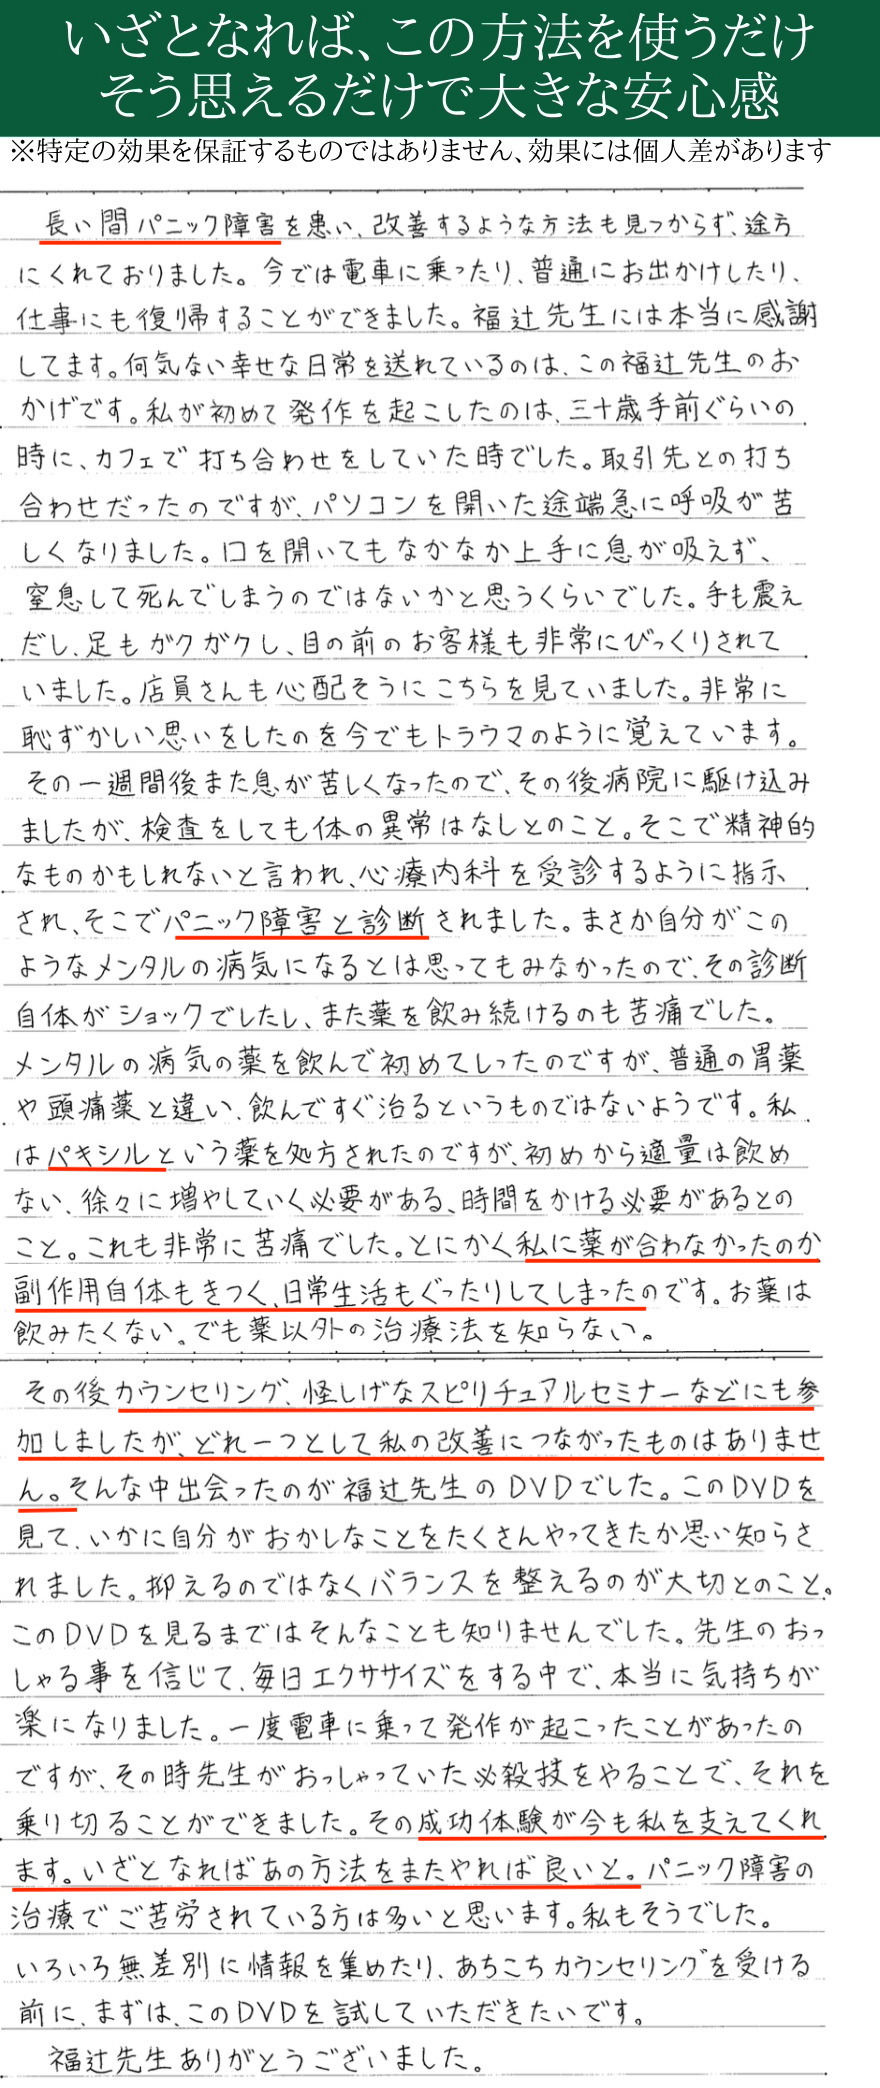 いざとなれば、この方法を使うだけ
そう思えるだけで大きな安心感
※特定の効果を保証するものではありません、効果には個人差があります
長い間パニック障害を患い、改善するような方法も見つからず、途方
にくれておりました。今では電車に乗ったり、普通にお出かけしたり、
仕事にも復帰することができました。福辻先生には本当に感謝
してます。何気ない幸せな日常を送れているのは、この福辻先生のお
かげです。私が初めて発作を起こしたのは、三十歳手前ぐらいの
時に、カフェで打ち合わせをしていた時でした。取引先との打ち
合わせだったのですが、パソコンを開いた途端急に呼吸が苦
しくなりました。口を開いてもなかなか上手に息が吸えず、
窒息して死んでしまうのではないかと思うくらいでした。手も震え
だし、足もガクガクし、目の前のお客様も非常にびっくりされて
いました。店員さんも心配そうにこちらを見ていました。非常に
恥ずかしい思いをしたのを今でもトラウマのように覚えています。
その一週間後また息が苦しくなったので、その後病院に駆け込み
ましたが、検査をしても体の異常はなしとのこと。そこで精神的
なものかもしれないと言われ、心療内科を受診するように指示
され、そこでパニック障害と診断されました。まさか自分がこの
ようなメンタルの病気になるとは思ってもみなかったので、その診断
自体がショックでしたし、また薬を飲み続けるのも苦痛でした。
メンタルの病気の薬を飲んで初めてしったのですが、普通の胃薬
や頭痛薬と違い、飲んですぐ治るというものではないようです。私
はパキシルという薬を処方されたのですが、初めから適量は飲め
ない、徐々に増やしていく必要がある、時間をかける必要があるとの
こと。これも非常に苦痛でした。とにかく私に薬が合わなかったのか
副作用自体もきつく、日常生活もぐったりしてしまったのです。お薬は
飲みたくない。でも薬以外の治療法を知らない。
その後カウンセリング、怪しげなスピリチュアルセミナーなどにも参
加しましたが、どれ一つとして私の改善につながったものはありませ
ん。そんな中出会ったのが福辻先生のDVDでした。このDVDを
見て、いかに自分がおかしなことをたくさんやってきたか思い知らさ
れました。抑えるのではなくバランスを整えるのが大切とのこと。
このDVDを見るまではそんなことも知りませんでした。先生のおっ
しゃる事を信じて、毎日エクササイズをする中で、本当に気持ちが
楽になりました。一度電車に乗って発作が起こったことがあったの
ですが、その時先生がおっしゃっていた必殺技をやることで、それを
乗り切ることができました。その成功体験が今も私を支えてくれ
ます。いざとなればあの方法をまたやれば良いと。パニック障害の
治療でご苦労されている方は多いと思います。私もそうでした。
いろいろ無差別に情報を集めたり、あちこちカウンセリングを受ける
前に、まずは、このDVDを試していただきたいです。
福辻先生ありがとうございました。